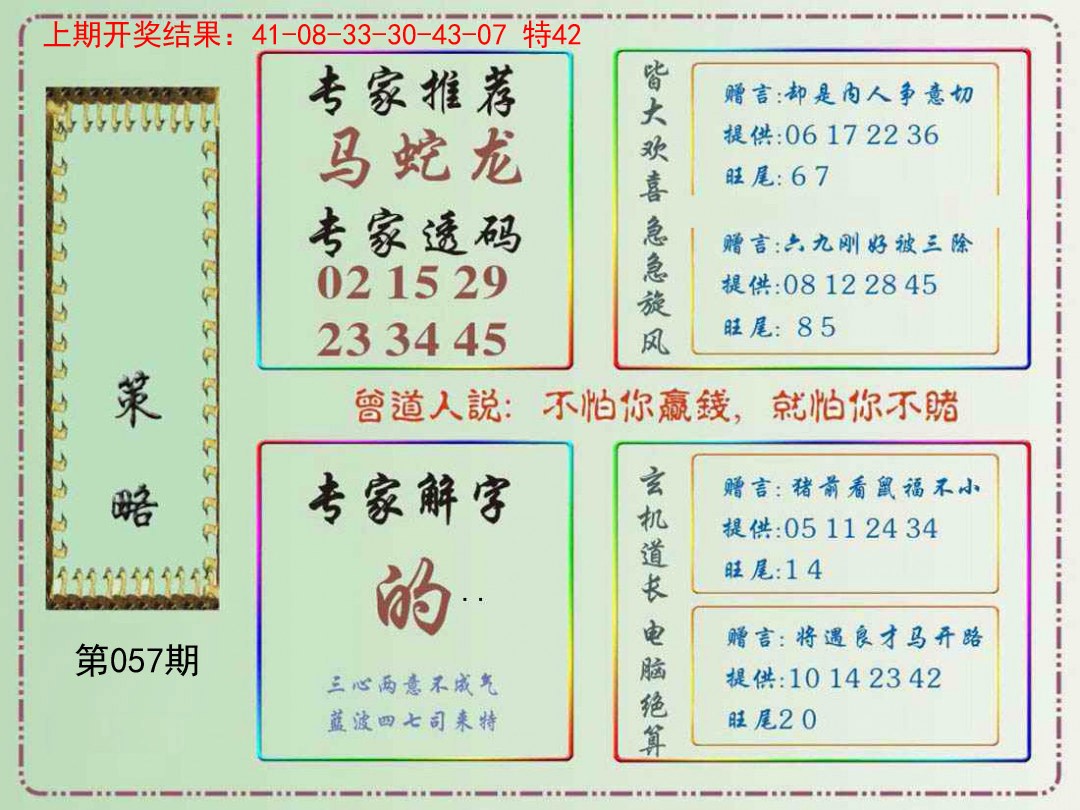 上期开奖结果：41-08-33-30-43-07 特42
策略
第057期
专家推荐
马蛇龙
专家透码
02 15 29
23 34 45
皆大欢喜
赠言:却是内人争意切
提供:06 17 22 36
旺尾:6 7
急急旋风
赠言:六九刚好被三除
提供:08 12 28 45
旺尾: 8 5
曾道人説：不怕你赢錢，就怕你不賭
专家解字
的..
三心两意不成气
蓝波四七司来特
玄机道长
赠言:猪前看鼠福不小
提供:05 11 24 34
旺尾:1 4
电脑绝算
赠言:将遇良才马开路
提供:10 14 23 42
旺尾2 0